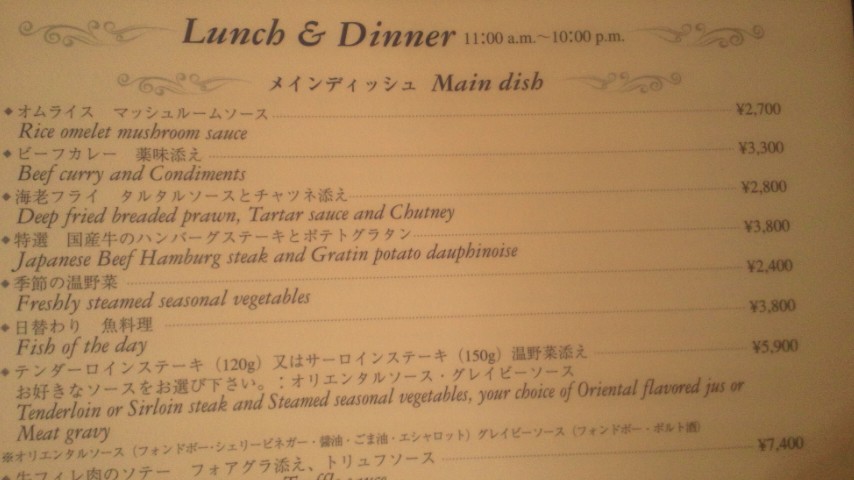 Lunch & Dinner 11:00 a.m.~10:00 p.m.
メインディッシュ Main dish
◆オムライス マッシュルームソース ¥2,700
Rice omelet mushroom sauce
◆ビーフカレー 薬味添え ¥3,300
Beef curry and Condiments
◆海老フライ タルタルソースとチャツネ添え ¥2,800
Deep fried breaded prawn, Tartar sauce and Chutney
◆特選 国産牛のハンバーグステーキとポテトグラタン ¥3,800
Japanese Beef Hamburg steak and Gratin potato dauphinoise
◆季節の温野菜 ¥2,400
Freshly steamed seasonal vegetables
◆日替わり 魚料理 ¥3,800
Fish of the day
◆テンダーロインステーキ（120g）又はサーロインステーキ（150g）温野菜添え ¥5,900
お好きなソースをお選び下さい。：オリエンタルソース・グレイビーソース
Tenderloin or Sirloin steak and Steamed seasonal vegetables, your choice of Oriental flavored jus or
Meat gravy
※オリエンタルソース（フォンドボー・シェリービネガー・醤油・ごま油・エシャロット）グレイビーソース（フォンドボー・ポルト酒）
◆牛フィレ肉のソテー フォアグラ添え、トリュフソース ¥7,400